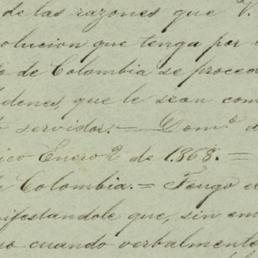 de las razones que V.
solucion que tenga por
o de Colombia se proced
ordenes, que le sean com
o servidor. = Dom.º d
ico Enero 2 de 1868. =
e Colombia. = Tengo e
nifestandole que, sin em
o cuando verbalment